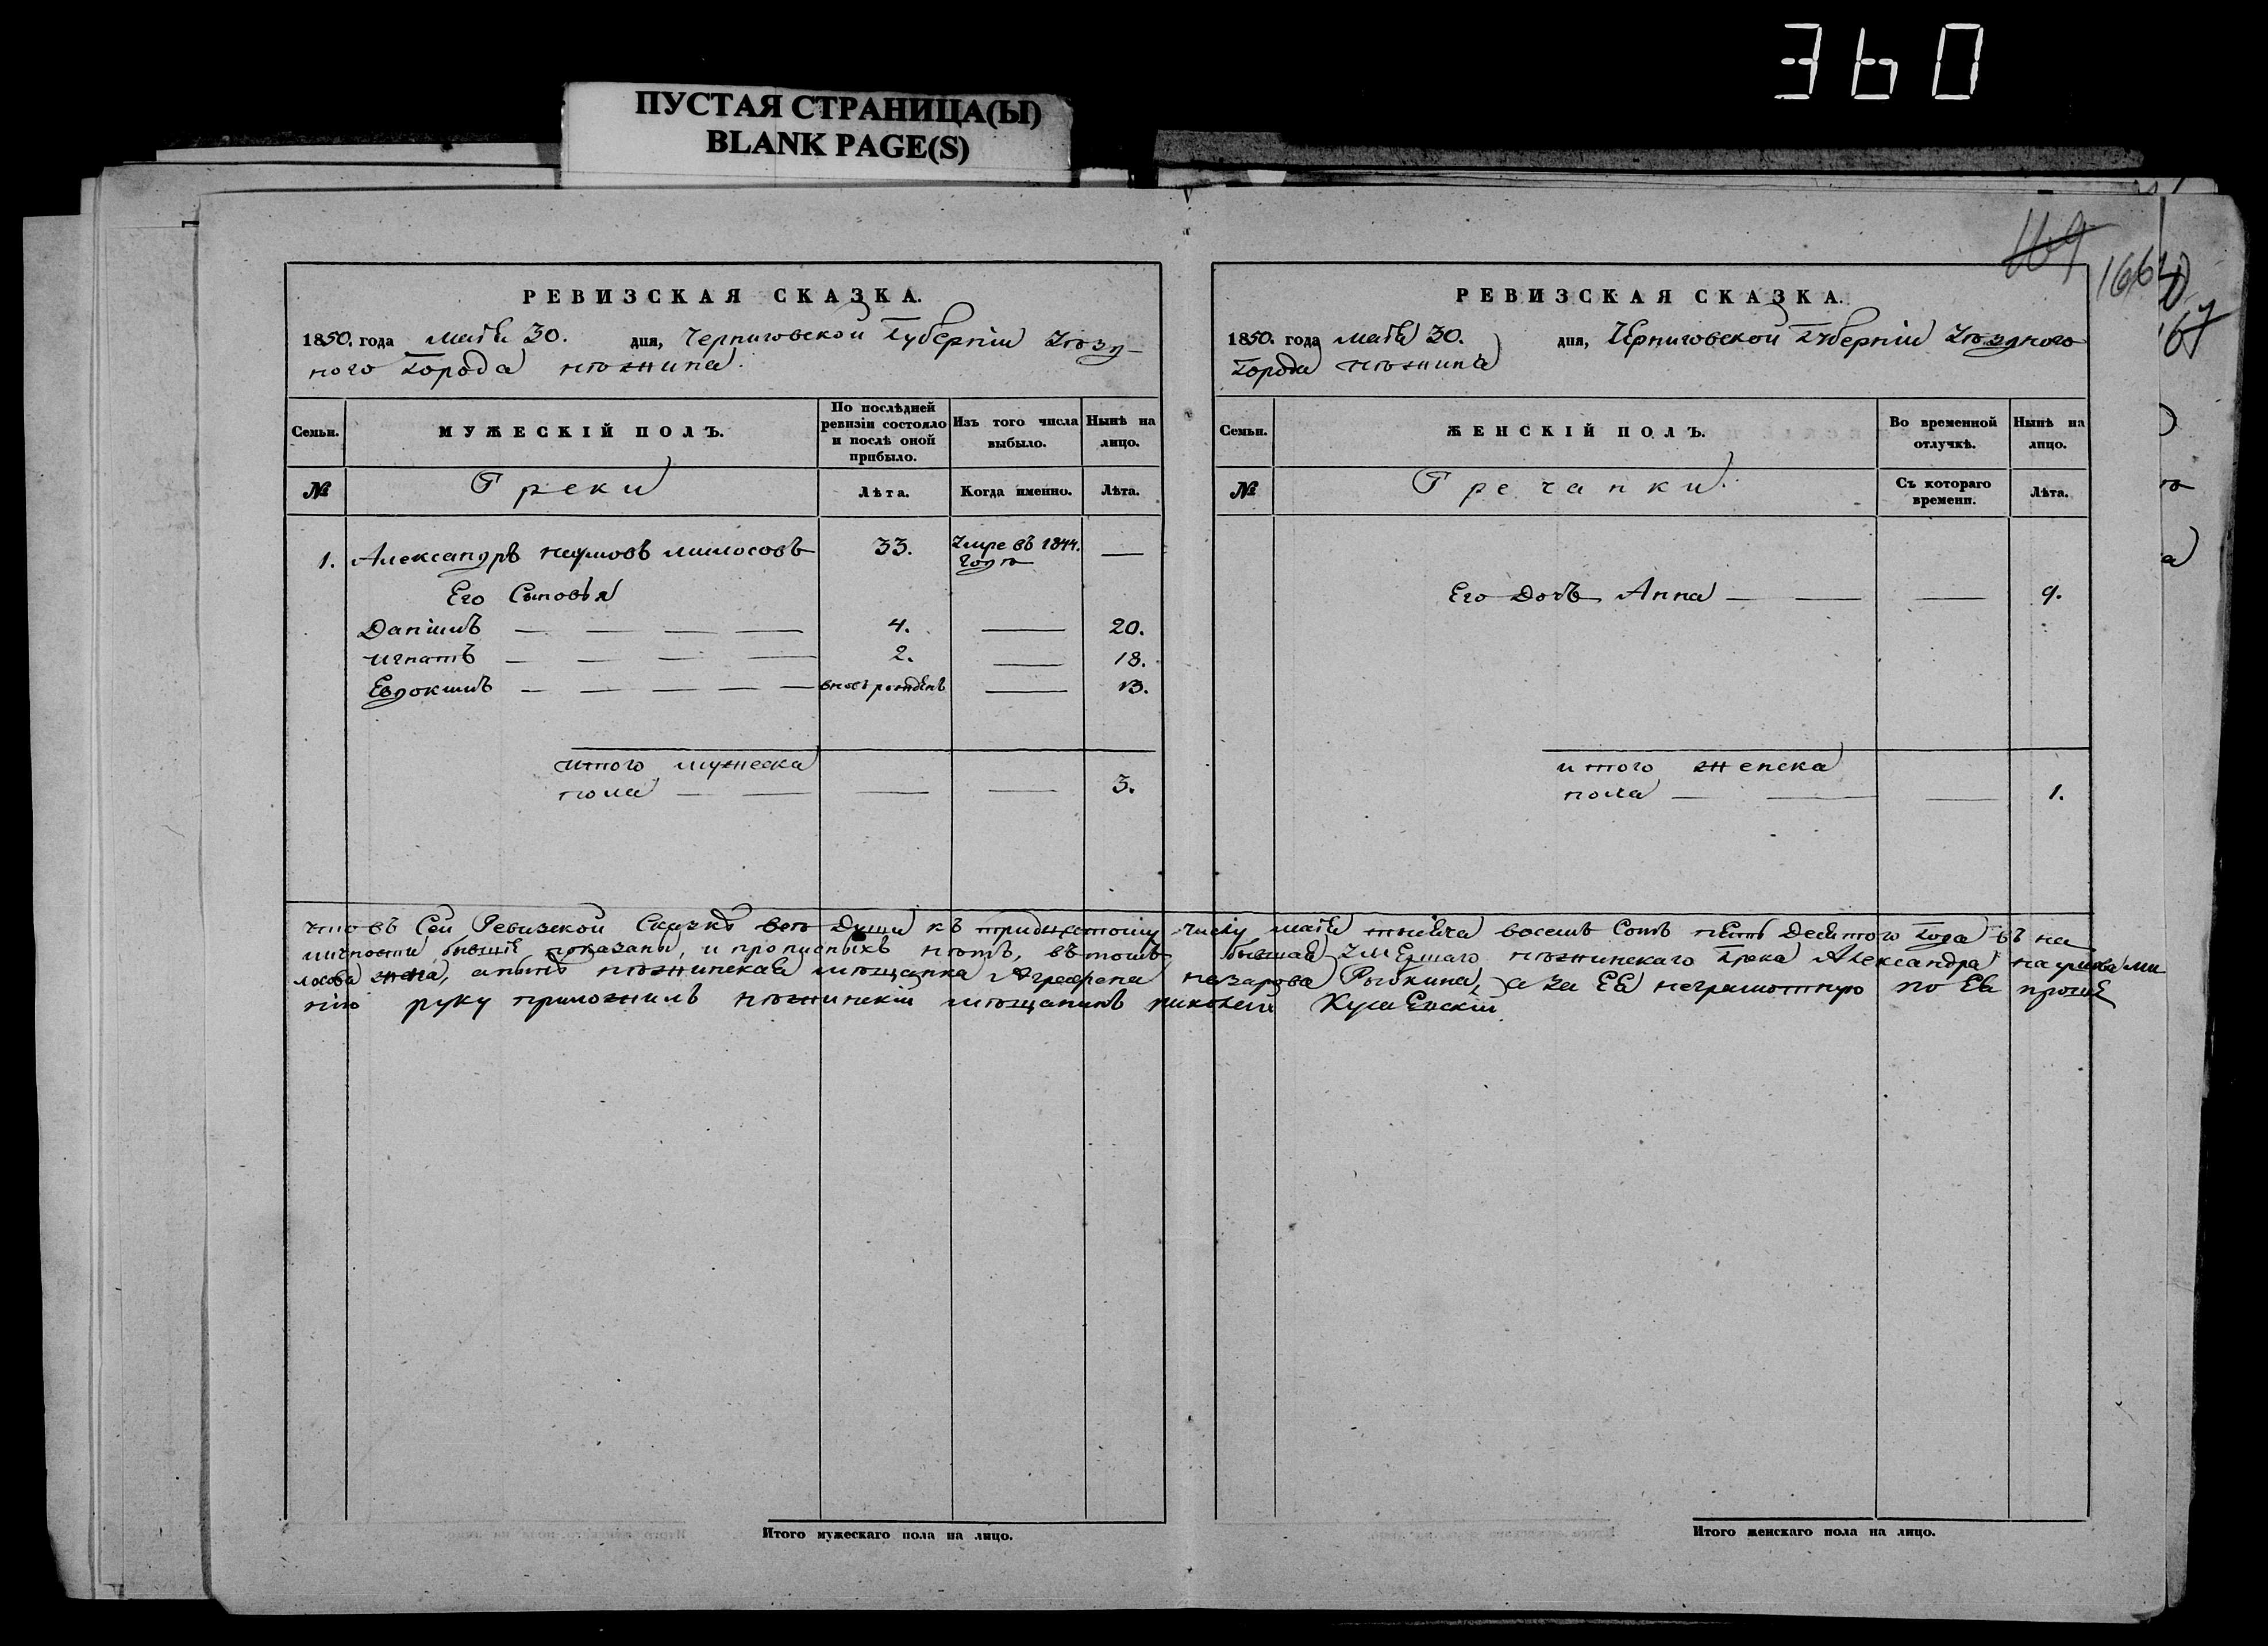 360
ПУСТАЯ СТРАНИЦА(Ы)
BLANK PAGE(S)
169
166
РЕВИЗСКАЯ СКАЗКА.
1850. года Маія 30. дня, Черниговской Губерніи Уѣзд-
ного Города нѣжина.
Семьи.
МУЖЕСКІЙ ПОЛЪ.
По послѣдней ревизіи состояло и послѣ оной прибыло.
Изъ того числа выбыло.
Нынѣ на лицо.
№
Греки
Лѣта.
Когда именно.
Лѣта.
1. Александръ наумовъ милосовъ 33. Умре въ 1844. —
годѣ
Его Сыновья
Даніилъ — — — — 4. — 20.
игнатъ — — — — 2. — 18.
Евдокимъ — — — — — рожденъ — 13.
итого мужеска
пола — — — — 3.
РЕВИЗСКАЯ СКАЗКА.
1850. года маія 30. дня, Черниговской Губерніи Уѣздного
Города нѣжина
Семьи.
ЖЕНСКІЙ ПОЛЪ.
Во временной отлучкѣ.
Нынѣ на лицо.
№
Гречанки.
Съ котораго времени.
Лѣта.
Его дочь Анна — — — 9.
итого женска
пола — — — 1.
что въ Сей Ревизской Сказкѣ всѣ Души къ тридцатому числу маія тысяча восемь Сотъ пять Десятого Года въ на
личности бывшіе показаны, и прописныхъ нѣтъ, въ томъ бывшая Умершаго нѣжинскаго Грека Александра наумова ми
лосова жена, а нынѣ нѣжинская мѣщанка Агрефена назарова Рыбкина, а за Ея неграмотную по Ея проше
нію руку приложилъ нѣжинскій мѣщанинъ николай
Итого мужескаго пола на лицо.
Итого женскаго пола на лицо.